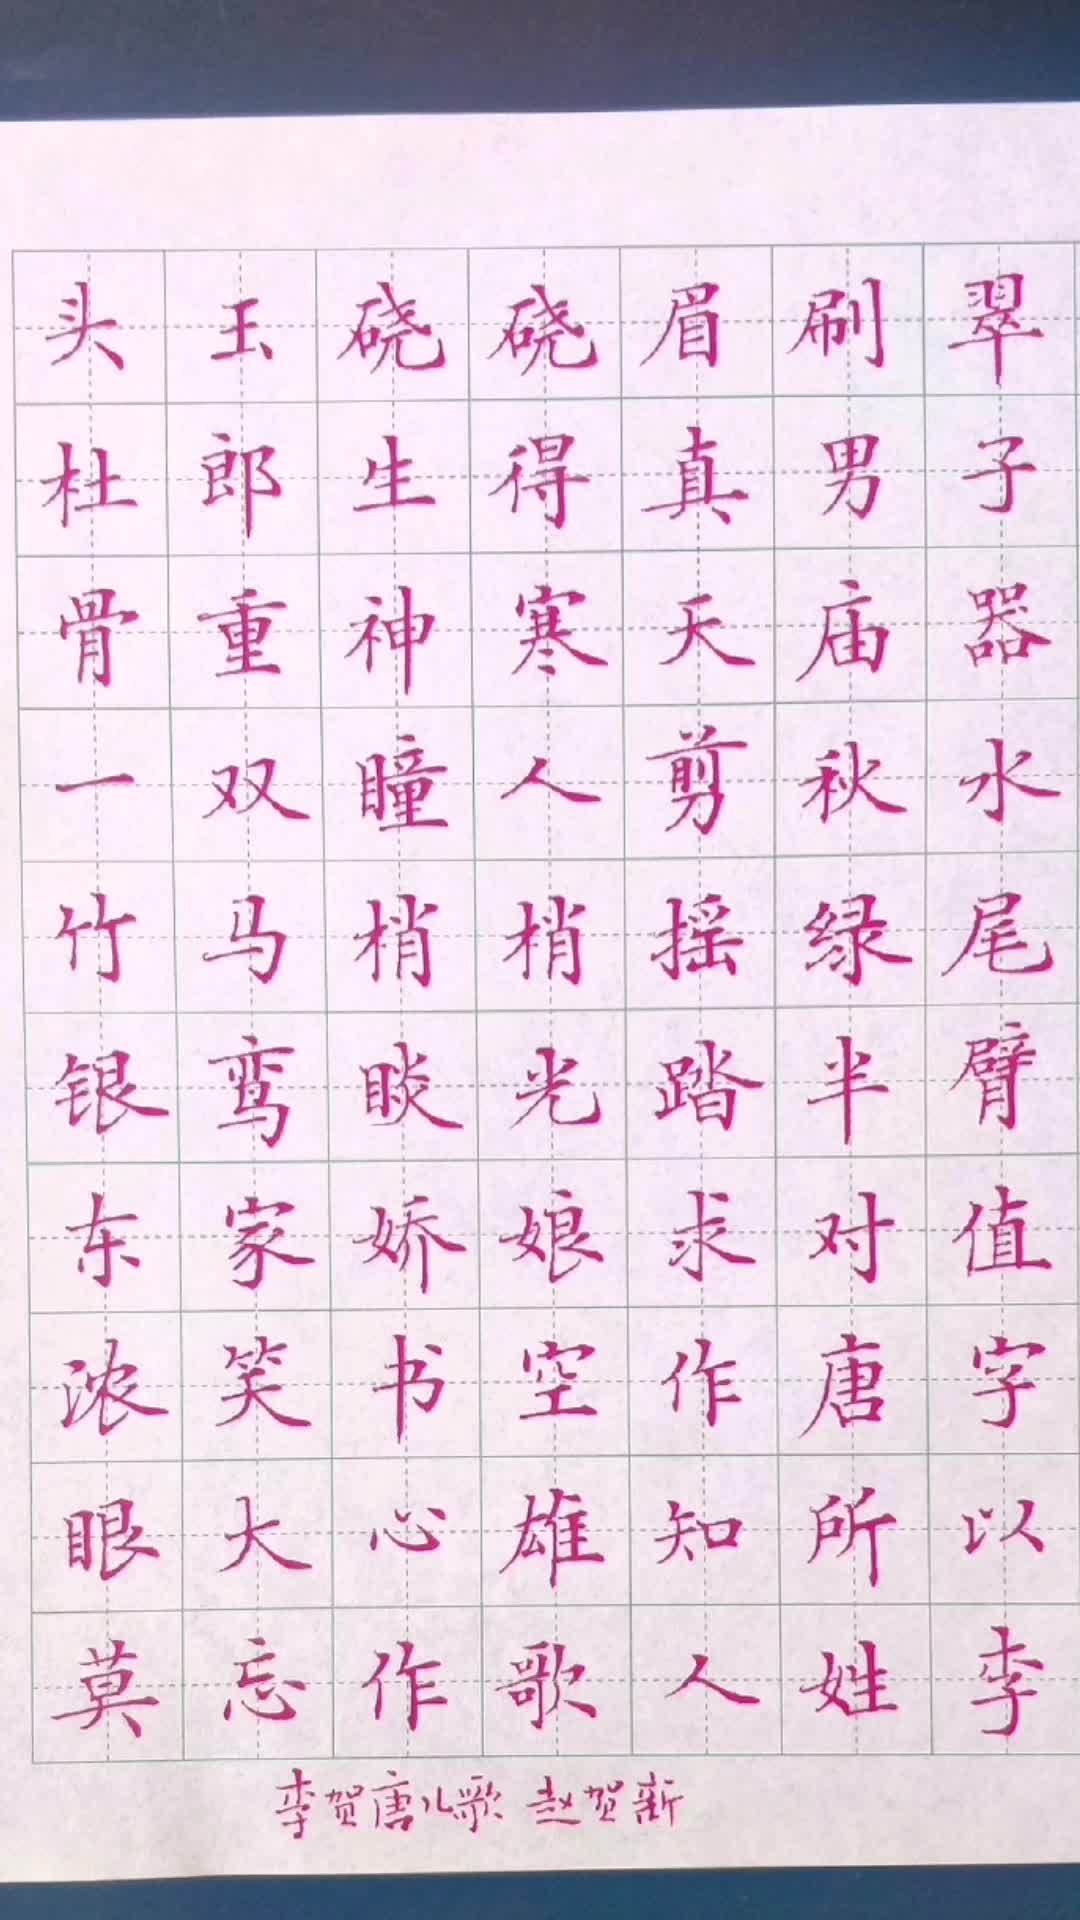 头玉硗硗眉刷翠
杜郎生得真男子
骨重神寒天庙器
一双瞳人剪秋水
竹马梢梢摇绿尾
银鸾睒光踏半臂
东家娇娘求对值
浓笑书空作唐字
眼大心雄知所以
莫忘作歌人姓李
李贺唐儿歌 赵贺新